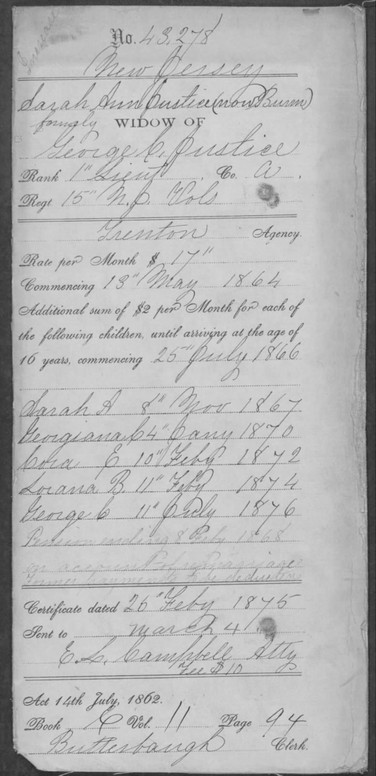 No. 43,278
New Jersey
Sarah Ann Justice (now Bunn)
formerly WIDOW OF
George C. Justice
Rank 1" Lieut Co. A
Regt 15" N.J. Vols
Trenton Agency.
Rate per Month $ 17"
Commencing 13" May 1864
Additional sum of $2 per Month for each of
the following children, until arriving at the age of
16 years, commencing 25" July 1866
Sarah A 8" Nov 1867
Georgiana C 4" Jany 1870
Cora E 10" Feby 1872
Lorana B 11" Feby 1874
George C 11" July 1876
Pension ending 8 Feby 1868
on account of remarriage
Former payments to be deducted
Certificate dated 26" Feby 1875
Sent to March 4
E. L. Campbell Atty
Fee $10
Act 14th July, 1862.
Book Vol. 11 Page 94
Butterbaugh Clerk.